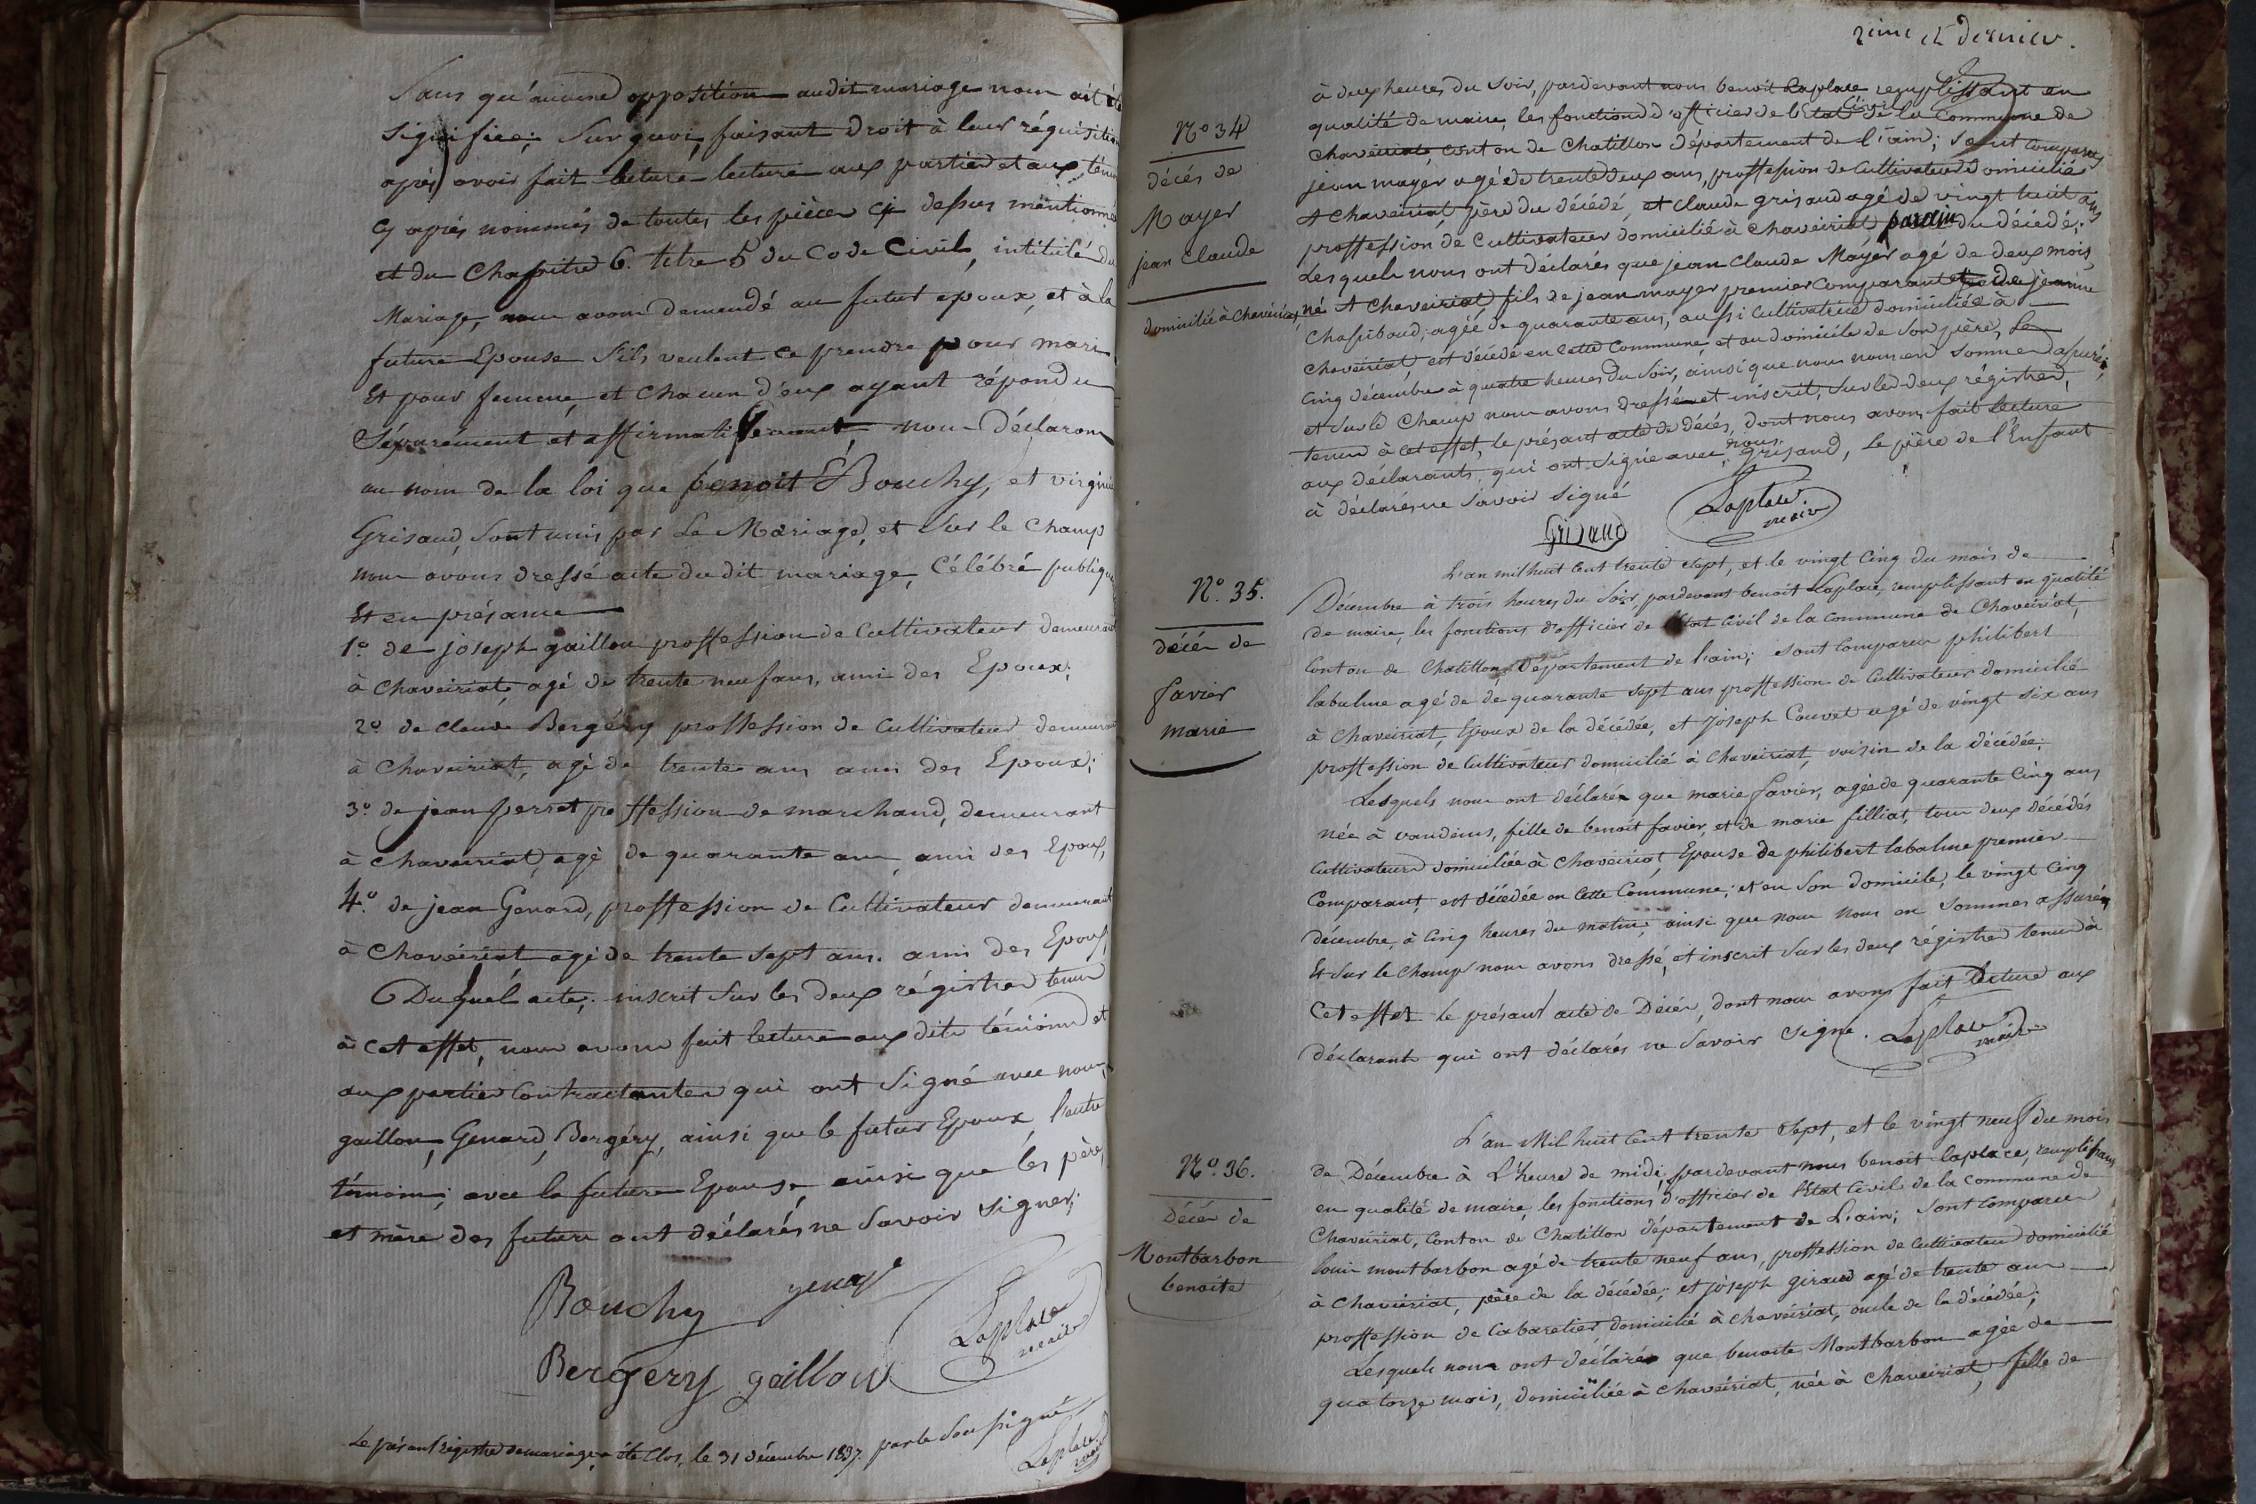 Sans qu'aucune opposition audit mariage nous ait été
Signifiée; Sur quoi, faisant Droit à leur réquisition
après avoir fait lecture lecture aux parties et aux témoins
cy après nommés de toutes les pièces cy dessus mentionnées
et du Chapitre 6. titre 5 du Code Civil, intitulé du
Mariage, nous avons demandé au futur epoux, et à la
future Epouse S'ils veulent ce prendre pour mari
Et pour femme, et chacun d'eux ayant répondu
Séparément et affirmativement, nous Déclarons
au nom de la loi que benoit Bouchy, et virginie
Grisaud, sont unis par Le Mariage, et Sur le champ
nous avons dressé acte dudit mariage, Célébré publique
Et en présance
1º. de joseph gaillou proffession de Cultivateur demeurant
à Chaveiriat, agé de trente neuf ans, ami des Epoux;
2º de claude Bergéry proffession de Cultivateur demeurant
à Chaveiriat, agé de trente ans ami des Epoux;
3º. de jean perret proffession de marchand, demeurant
à chaveiriat, agé de quarante ans, ami des Epoux,
4º. de jean Genard, proffession de Cultivateur demeurant
à Chavéiriat agé de trente sept ans. ami des Epoux,
Duquel acte, inscrit sur les deux régistres tenus
à cet effet, nous avons fait lecture aux dits témoins et
aux parties contractantes qui ont Signé avec nous,
gaillou, Genard, Bergéry, ainsi que le futur Epoux, l'autre
témoin; avec la future Epouse ainsi que les père,
et mère des futurs ont déclarés ne Savoir Signer;
Bouchy
Laplace
maire
Bergery gaillou
Le présant régistre de mariage, a été Clos, le 31 Décembre 1837. par le Soussigné
Laplace
maire
2ème et dernier.
Nº 34
décés de
Mayer
jean Claude
domicilié à Chavéiriat
à deux heures du Soir, pardevant nous benoit Laplace remplissant en
qualité de maire, les fonctions d'officier de l'Etat Civil de la Commune de
Chaveiriat, conton de Chatillon département de l'ain; sont comparus
jean mayer agé de trente deux ans, proffession de Cultivateur domicilié
A Chaveiriat, père du décédé, et claude grisaud agé de vingt huit ans
proffession de Cultivateur domicilié à Chaveiriat, parain du décédé;
Lesquels nous ont déclarés que jean Claude Mayer agé de deux mois,
né A Chaveiriat, fils de jean mayer premier comparant et de jeanne
Chassiboud, agée de quarante ans, aussi Cultivatrice domiciliée à
Chaveiriat est décédé en cette Commune, et au domicile de Son père, Le
Cinq décembre à quatre heures du Soir, ainsi que nous nous en sommes assurés;
et Sur le Champ nous avons dressé et inscrit, Sur les deux régistres,
tenus à cet effet, le présant acte de décés, dont nous avons fait lecture
aux déclarants qui ont Signé avec nous Grisaud, Le père de l'Enfant
à déclaré ne Savoir Signé
Grisaud
Laplace
maire
Nº. 35.
décés de
favier
marie
L'an mil huit cent trente Sept, et le vingt Cinq du mois de
Décembre à trois heures du Soir, pardevant benoit Laplace, remplissant en qualité
de maire, les fonctions d'officier de l'Etat Civil de la Commune de Chaveiriat,
conton de Chatillon, Département de l'ain; sont comparus philibert
labalme agé de de quarante sept ans proffession de Cultivateur domicilié
à Chaveiriat, Epoux de la décédée, et joseph Couvet agé de vingt six ans
proffession de Cultivateur domicilié à Chaveiriat voisin de la décédée;
Lesquels nous ont déclarés que marie favier, agée de quarante Cinq ans
née à vandeins, fille de benoit favier, et de marie filliat, tous deux décédés
Cultivateurs domiciliée à Chaveiriat, Epouse de philibert labalme premier
Comparant, est décédée en Cette Commune, et en Son domicile, le vingt Cinq
décembre, à Cinq heures du matin, ainsi que nous nous en sommes assurés,
Et Sur le Champ nous avons dressé, et inscrit Sur les deux régistres tenus à
Cet effet le présant acte de Décés, dont nous avons fait lecture aux
déclarants qui ont déclarés ne Savoir Signé.
Laplace
maire
Nº. 36.
Décés de
Montbarbon
benoite
L'an Mil huit Cent trente Sept, et le vingt neuf du mois
de Décembre à L'heure de midi, pardevant nous benoit laplace, remplissant
en qualité de maire, les fonctions d'officier de l'Etat Civil de la Commune de
Chaveiriat, Conton de Chatillon département de L'ain; sont comparus
louis montbarbon agé de trente neuf ans, proffession de Cultivateur domicilié
à Chaveiriat, père de la décédée; et joseph giraud agé de trente ans
proffession de Cabaretier domicilié à chavéiriat, oncle de la décédée;
Lesquels nous ont déclarés que benoite Montbarbon agée de
quatorze mois, domiciliée à chavéiriat, née à chaveiriat, fille de